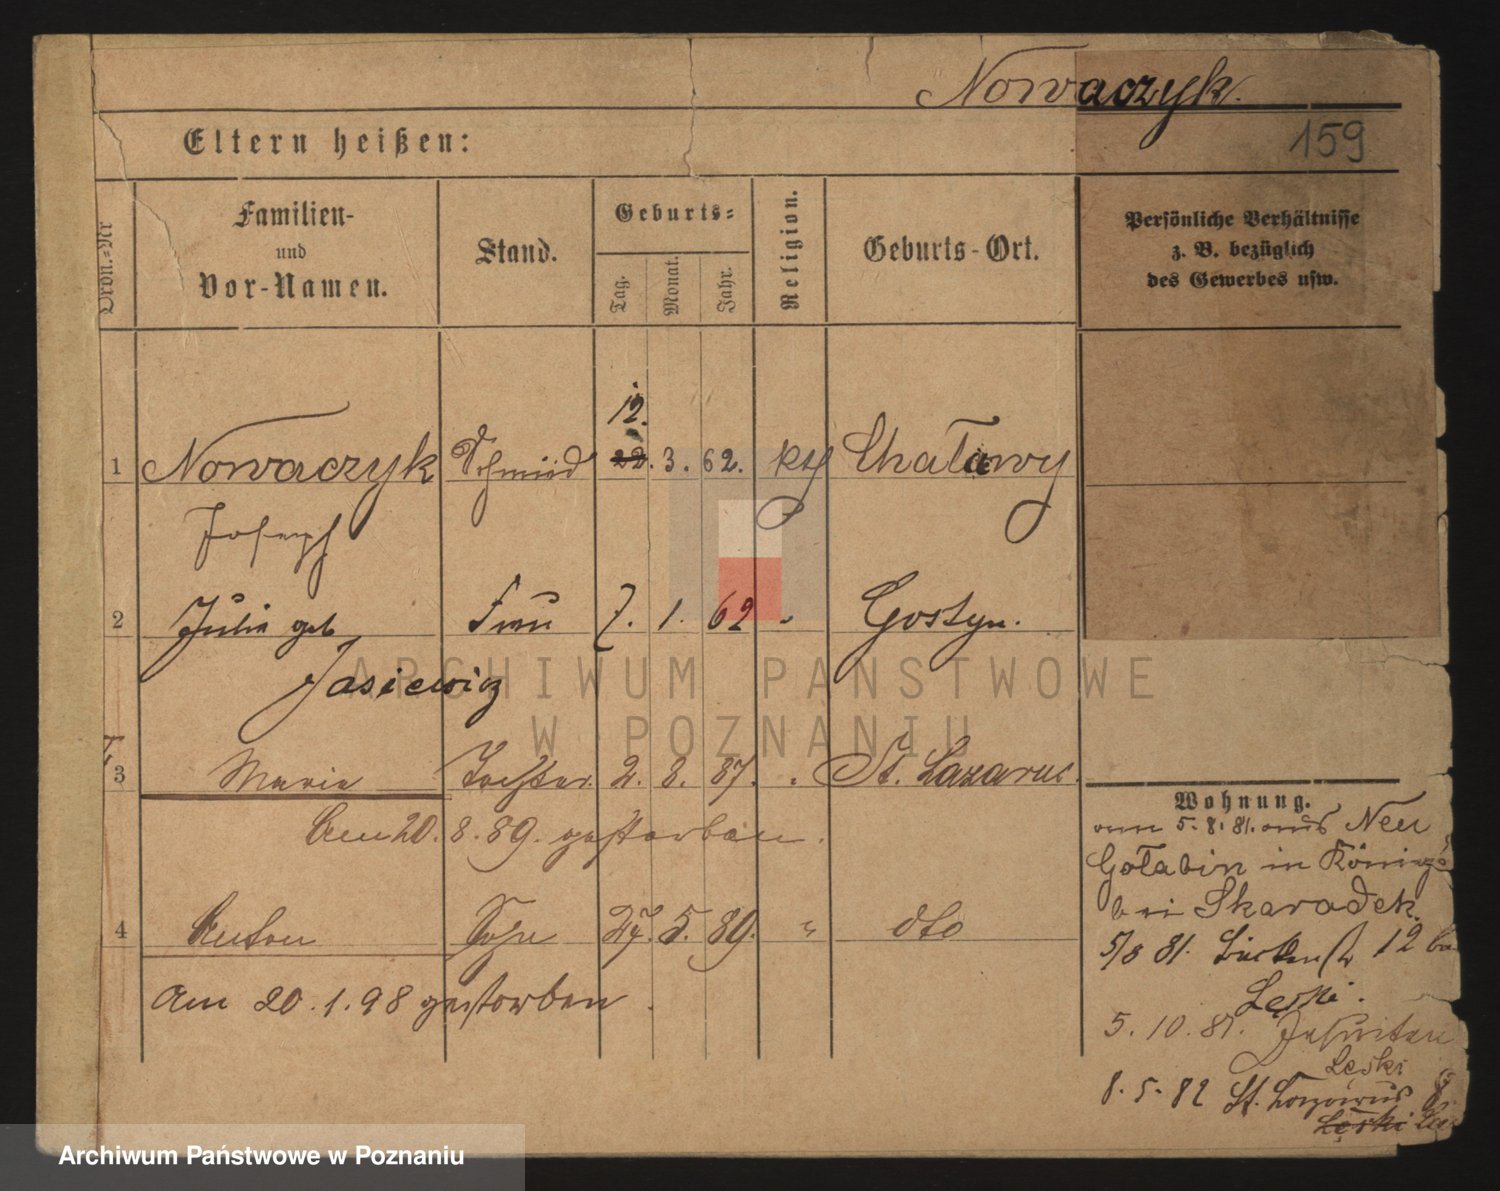 Nowaczyk.
159
Eltern heißen:
Ordn.-Nr
Familien-
und
Vor-Namen.
Stand.
Geburts-
Tag.
Monat.
Jahr.
Religion.
Geburts-Ort.
Persönliche Verhältnisse
z. B. bezüglich
des Gewerbes usw.
12.
1 Nowaczyk Schmied 22. 3. 62. kth Chaławy
Joseph
2 Julie geb Frau 7. 1. 62 " Gostyn.
Jasiewicz
3 Marie Tochter. 2. 8. 87. " St. Lazarus.
Am 20. 8. 89. gestorben.
4 Anton Sohn 27. 5. 89. " dto
Am 20.1.98 gestorben.
Wohnung.
am 5.8.81. aus Neu
Gołabin in
bei Skaradek.
5/8 81. 12 bei
Leski.
5. 10. 81. Jesuiten
Leski
8. 5. 82 St. Lazarus 8.
Leski
ARCHIWUM PAŃSTWOWE
W POZNANIU
Archiwum Państwowe w Poznaniu